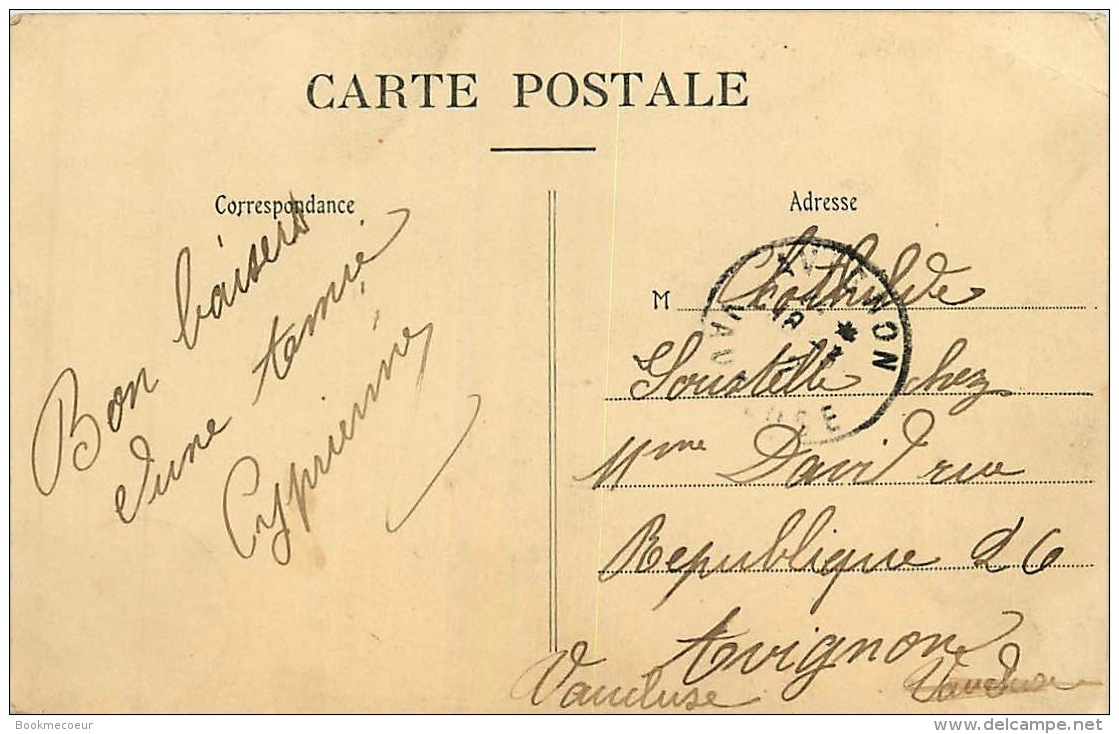 CARTE POSTALE
Correspondance
Bon baisers
d'une Amie
Cyprienne
Adresse
M Clothilde
Soustelle chez
Mme David rue
Republique 26
Avignon
Vaucluse Vaucluse
AVIGNON
VAUCLUSE
Bookmecoeur
www.delcampe.net